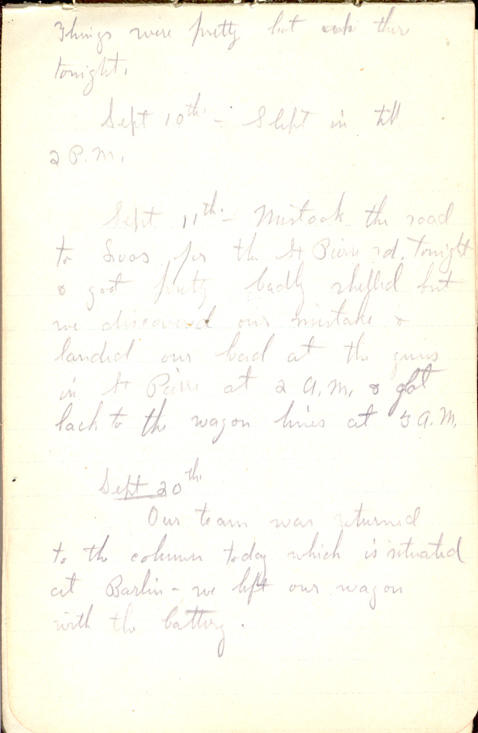 Things were pretty hot out there
tonight.
Sept 10th - Slept in till
2 P.M.
Sept 11th - Mistook the road
to Loos for the St Pierre rd. tonight
& got pretty badly shelled but
we discovered our mistake &
landed our load at the guns
in St Pierre at 2 A.M. & got
back to the wagon lines at 5 A.M.
Sept 20th
Our team was returned
to the column today which is situated
at Barlin - we left our wagon
with the battery.